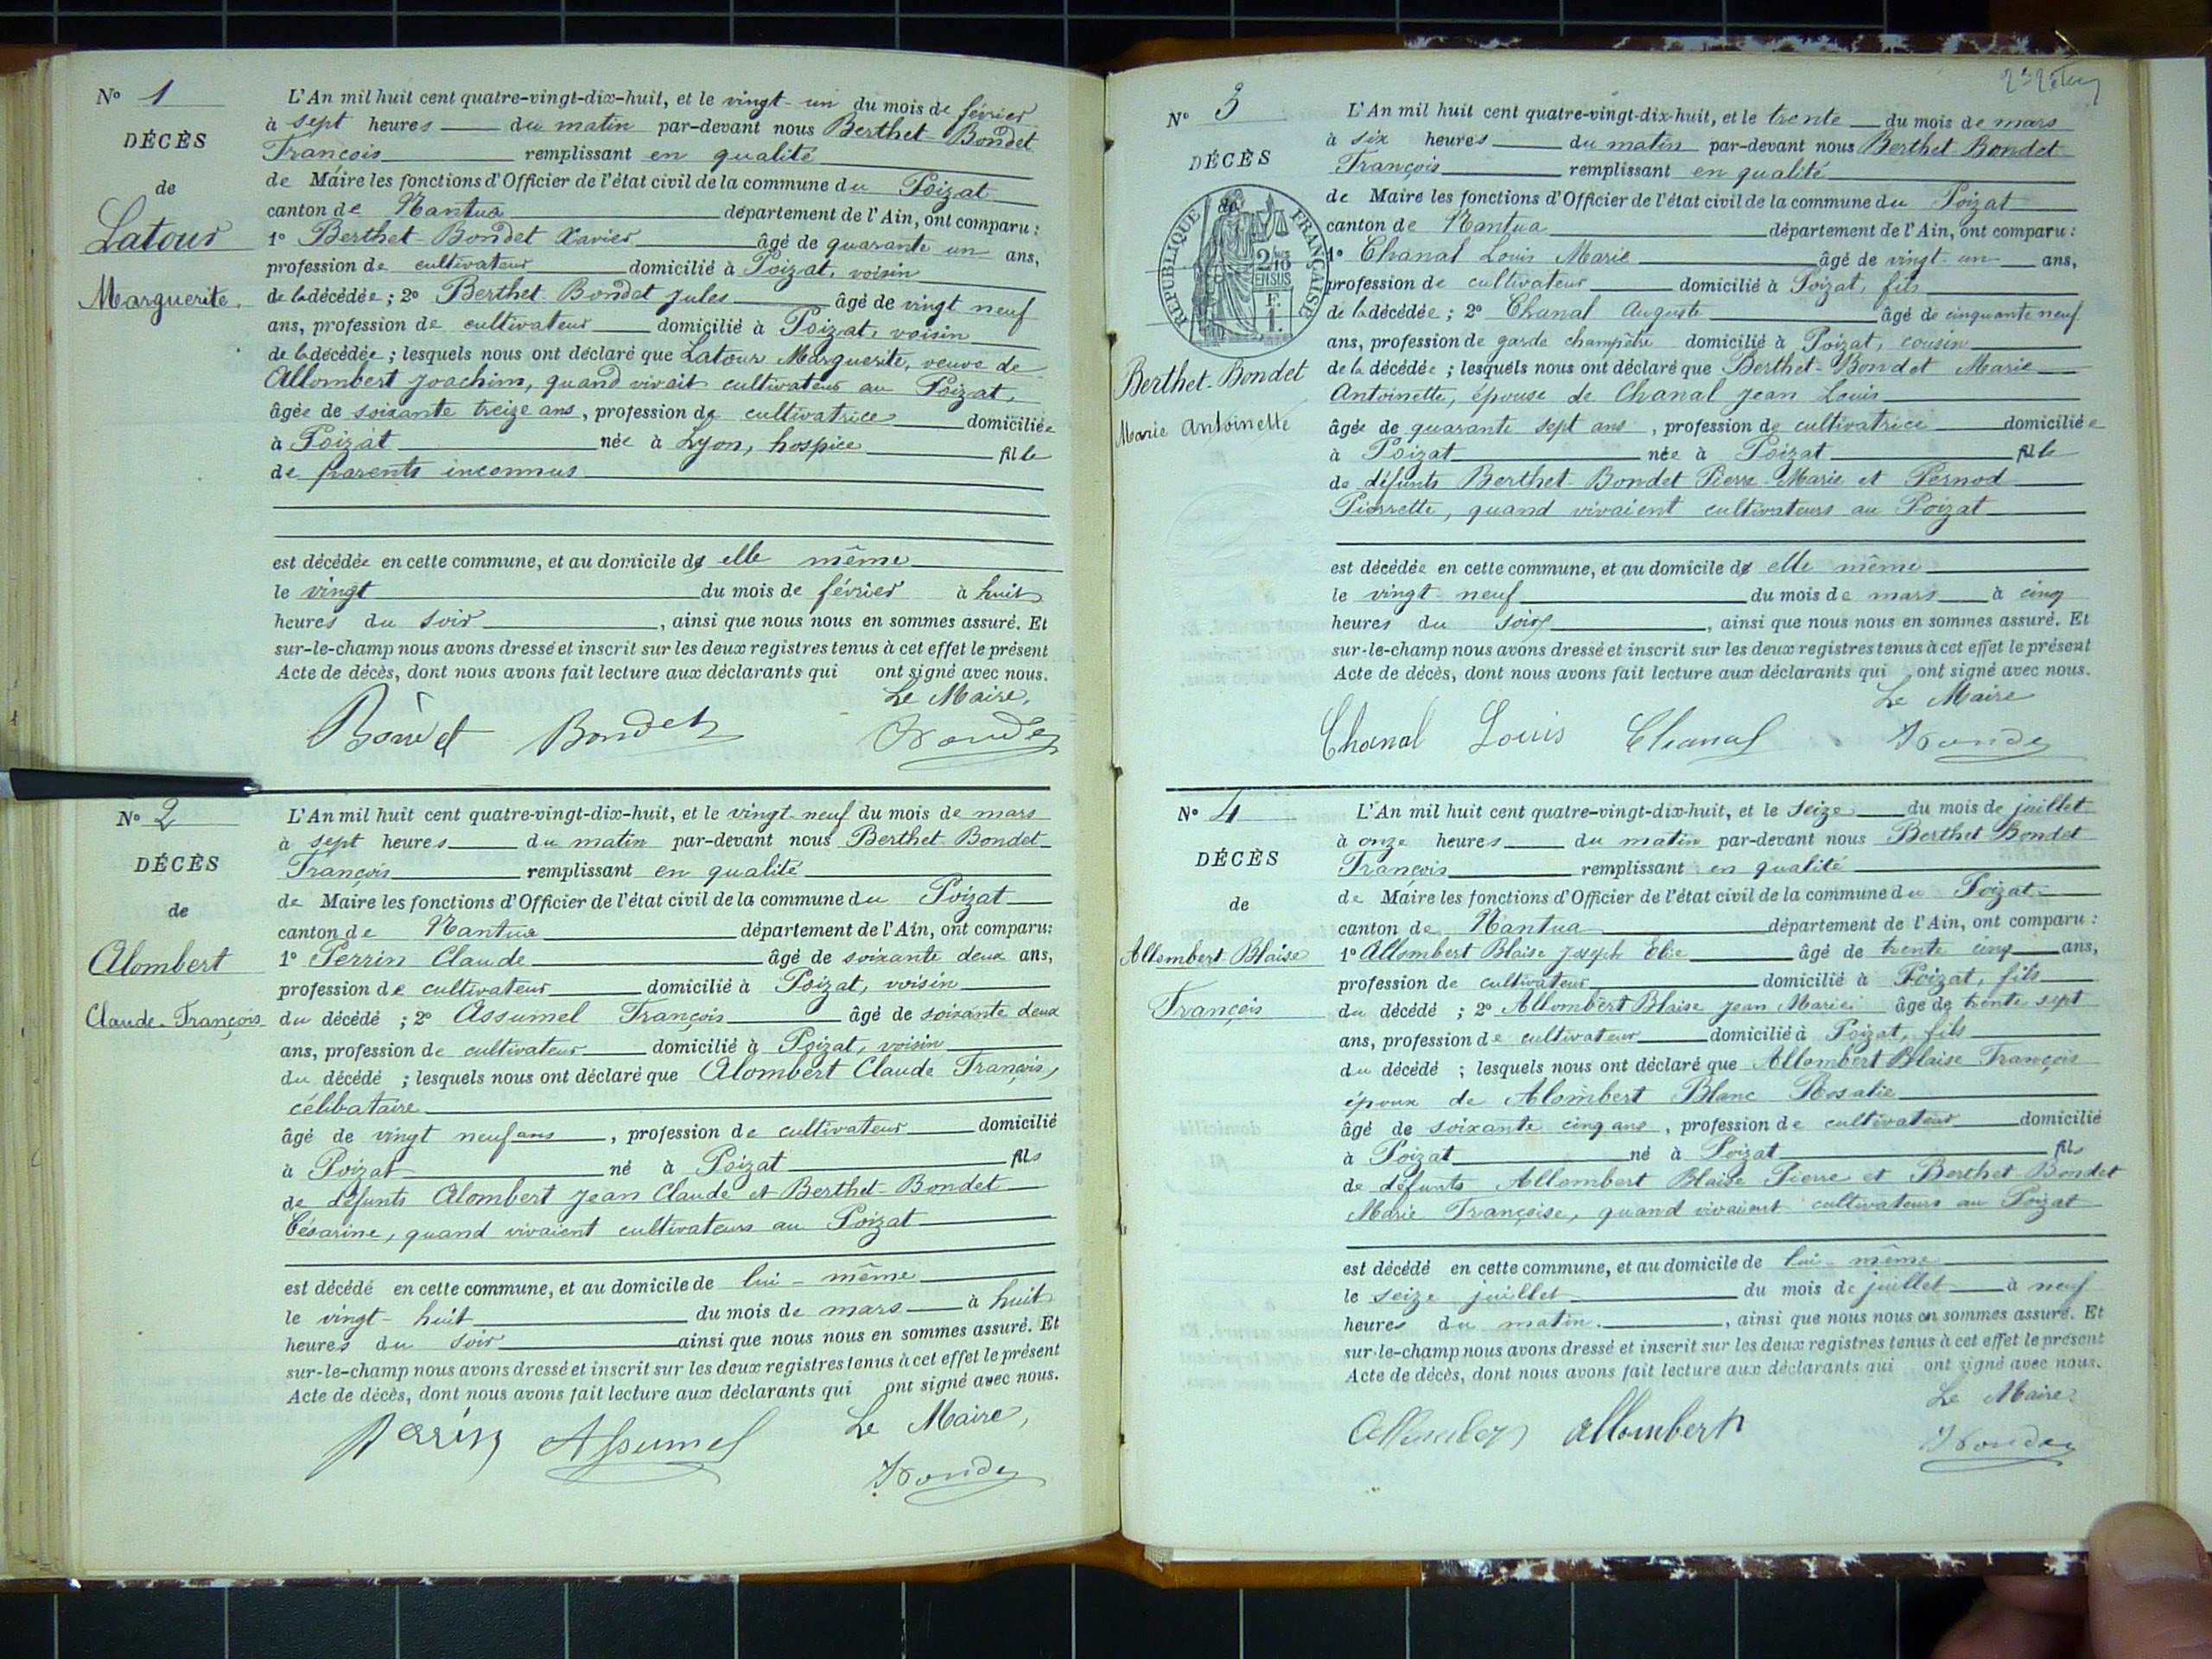 N° 1
DÉCÈS
de
Latour
Marguerite.
L'An mil huit cent quatre-vingt-dix-huit, et le vingt-un du mois de février
à sept heures du matin par-devant nous Berthet-Bondet
François remplissant en qualité
de Maire les fonctions d'Officier de l'état civil de la commune du Poizat
canton de Nantua département de l'Ain, ont comparu:
1° Berthet-Bondet Xavier âgé de quarante un ans,
profession de cultivateur domicilié à Poizat, voisin
de la décédée; 2° Berthet-Bondet Jules âgé de vingt neuf
ans, profession de cultivateur domicilié à Poizat, voisin
de la décédée; lesquels nous ont déclaré que Latour Marguerite, veuve de
Allombert Joachim, quand vivait cultivateur au Poizat,
âgée de soixante treize ans, profession de cultivatrice domiciliée
à Poizat née à Lyon, hospice fille
de parents inconnus
est décédée en cette commune, et au domicile d' elle même
le vingt du mois de février à huit
heures du soir, ainsi que nous nous en sommes assuré. Et
sur-le-champ nous avons dressé et inscrit sur les deux registres tenus à cet effet le présent
Acte de décès, dont nous avons fait lecture aux déclarants qui ont signé avec nous.
Le Maire,
Bondet Bondet
N° 2
DÉCÈS
de
Alombert
Claude-François
L'An mil huit cent quatre-vingt-dix-huit, et le vingt-neuf du mois de mars
à sept heures du matin par-devant nous Berthet-Bondet
François remplissant en qualité
de Maire les fonctions d'Officier de l'état civil de la commune du Poizat
canton de Nantua département de l'Ain, ont comparu:
1° Perrin Claude âgé de soixante deux ans,
profession de cultivateur domicilié à Poizat, voisin
du décédé; 2° Assumel François âgé de soixante deux
ans, profession de cultivateur domicilié à Poizat, voisin
du décédé; lesquels nous ont déclaré que Alombert Claude François,
célibataire
âgé de vingt neuf ans, profession de cultivateur domicilié
à Poizat né à Poizat fils
de défunts Alombert Jean Claude et Berthet-Bondet
Césarine, quand vivaient cultivateurs au Poizat
est décédé en cette commune, et au domicile de lui-même
le vingt-huit du mois de mars à huit
heures du soir ainsi que nous nous en sommes assuré. Et
sur-le-champ nous avons dressé et inscrit sur les deux registres tenus à cet effet le présent
Acte de décès, dont nous avons fait lecture aux déclarants qui ont signé avec nous.
Le Maire,
Perrin Assumel
N° 3
DÉCÈS
de
RÉPUBLIQUE FRANÇAISE
Berthet-Bondet
Marie Antoinette
L'An mil huit cent quatre-vingt-dix-huit, et le trente du mois de mars
à six heures du matin par-devant nous Berthet-Bondet
François remplissant en qualité
de Maire les fonctions d'Officier de l'état civil de la commune du Poizat
canton de Nantua département de l'Ain, ont comparu:
1° Chanal Louis Marie âgé de vingt-un ans,
profession de cultivateur domicilié à Poizat, fils
de la décédée; 2° Chanal Auguste âgé de cinquante neuf
ans, profession de garde champêtre domicilié à Poizat, cousin
de la décédée; lesquels nous ont déclaré que Berthet-Bondet Marie
Antoinette, épouse de Chanal Jean Louis
âgée de quarante sept ans, profession de cultivatrice domiciliée
à Poizat née à Poizat fille
de défunts Berthet-Bondet Pierre-Marie et Pernod
Pierrette, quand vivaient cultivateurs au Poizat
est décédée en cette commune, et au domicile d' elle même
le vingt neuf du mois de mars à cinq
heures du soir, ainsi que nous nous en sommes assuré. Et
sur-le-champ nous avons dressé et inscrit sur les deux registres tenus à cet effet le présent
Acte de décès, dont nous avons fait lecture aux déclarants qui ont signé avec nous.
Le Maire
Chanal Louis Chanal
N° 4
DÉCÈS
de
Allombert Blaise
François
L'An mil huit cent quatre-vingt-dix-huit, et le seize du mois de juillet
à onze heures du matin par-devant nous Berthet Bondet
François remplissant en qualité
de Maire les fonctions d'Officier de l'état civil de la commune du Poizat
canton de Nantua département de l'Ain, ont comparu:
1° Allombert Blaise Joseph Elie âgé de trente cinq ans,
profession de cultivateur domicilié à Poizat, fils
du décédé; 2° Allombert Blaise Jean Marie âgé de trente sept
ans, profession de cultivateur domicilié à Poizat, fils
du décédé; lesquels nous ont déclaré que Allombert Blaise François
époux de Alombert Blanc Rosalie
âgé de soixante cinq ans, profession de cultivateur domicilié
à Poizat né à Poizat fils
de défunts Allombert Blaise Pierre et Berthet-Bondet
Marie Françoise, quand vivaient cultivateurs au Poizat
est décédé en cette commune, et au domicile de lui-même
le seize juillet du mois de juillet à neuf
heures du matin., ainsi que nous nous en sommes assuré. Et
sur-le-champ nous avons dressé et inscrit sur les deux registres tenus à cet effet le présent
Acte de décès, dont nous avons fait lecture aux déclarants qui ont signé avec nous.
Le Maire
Allombert allombert